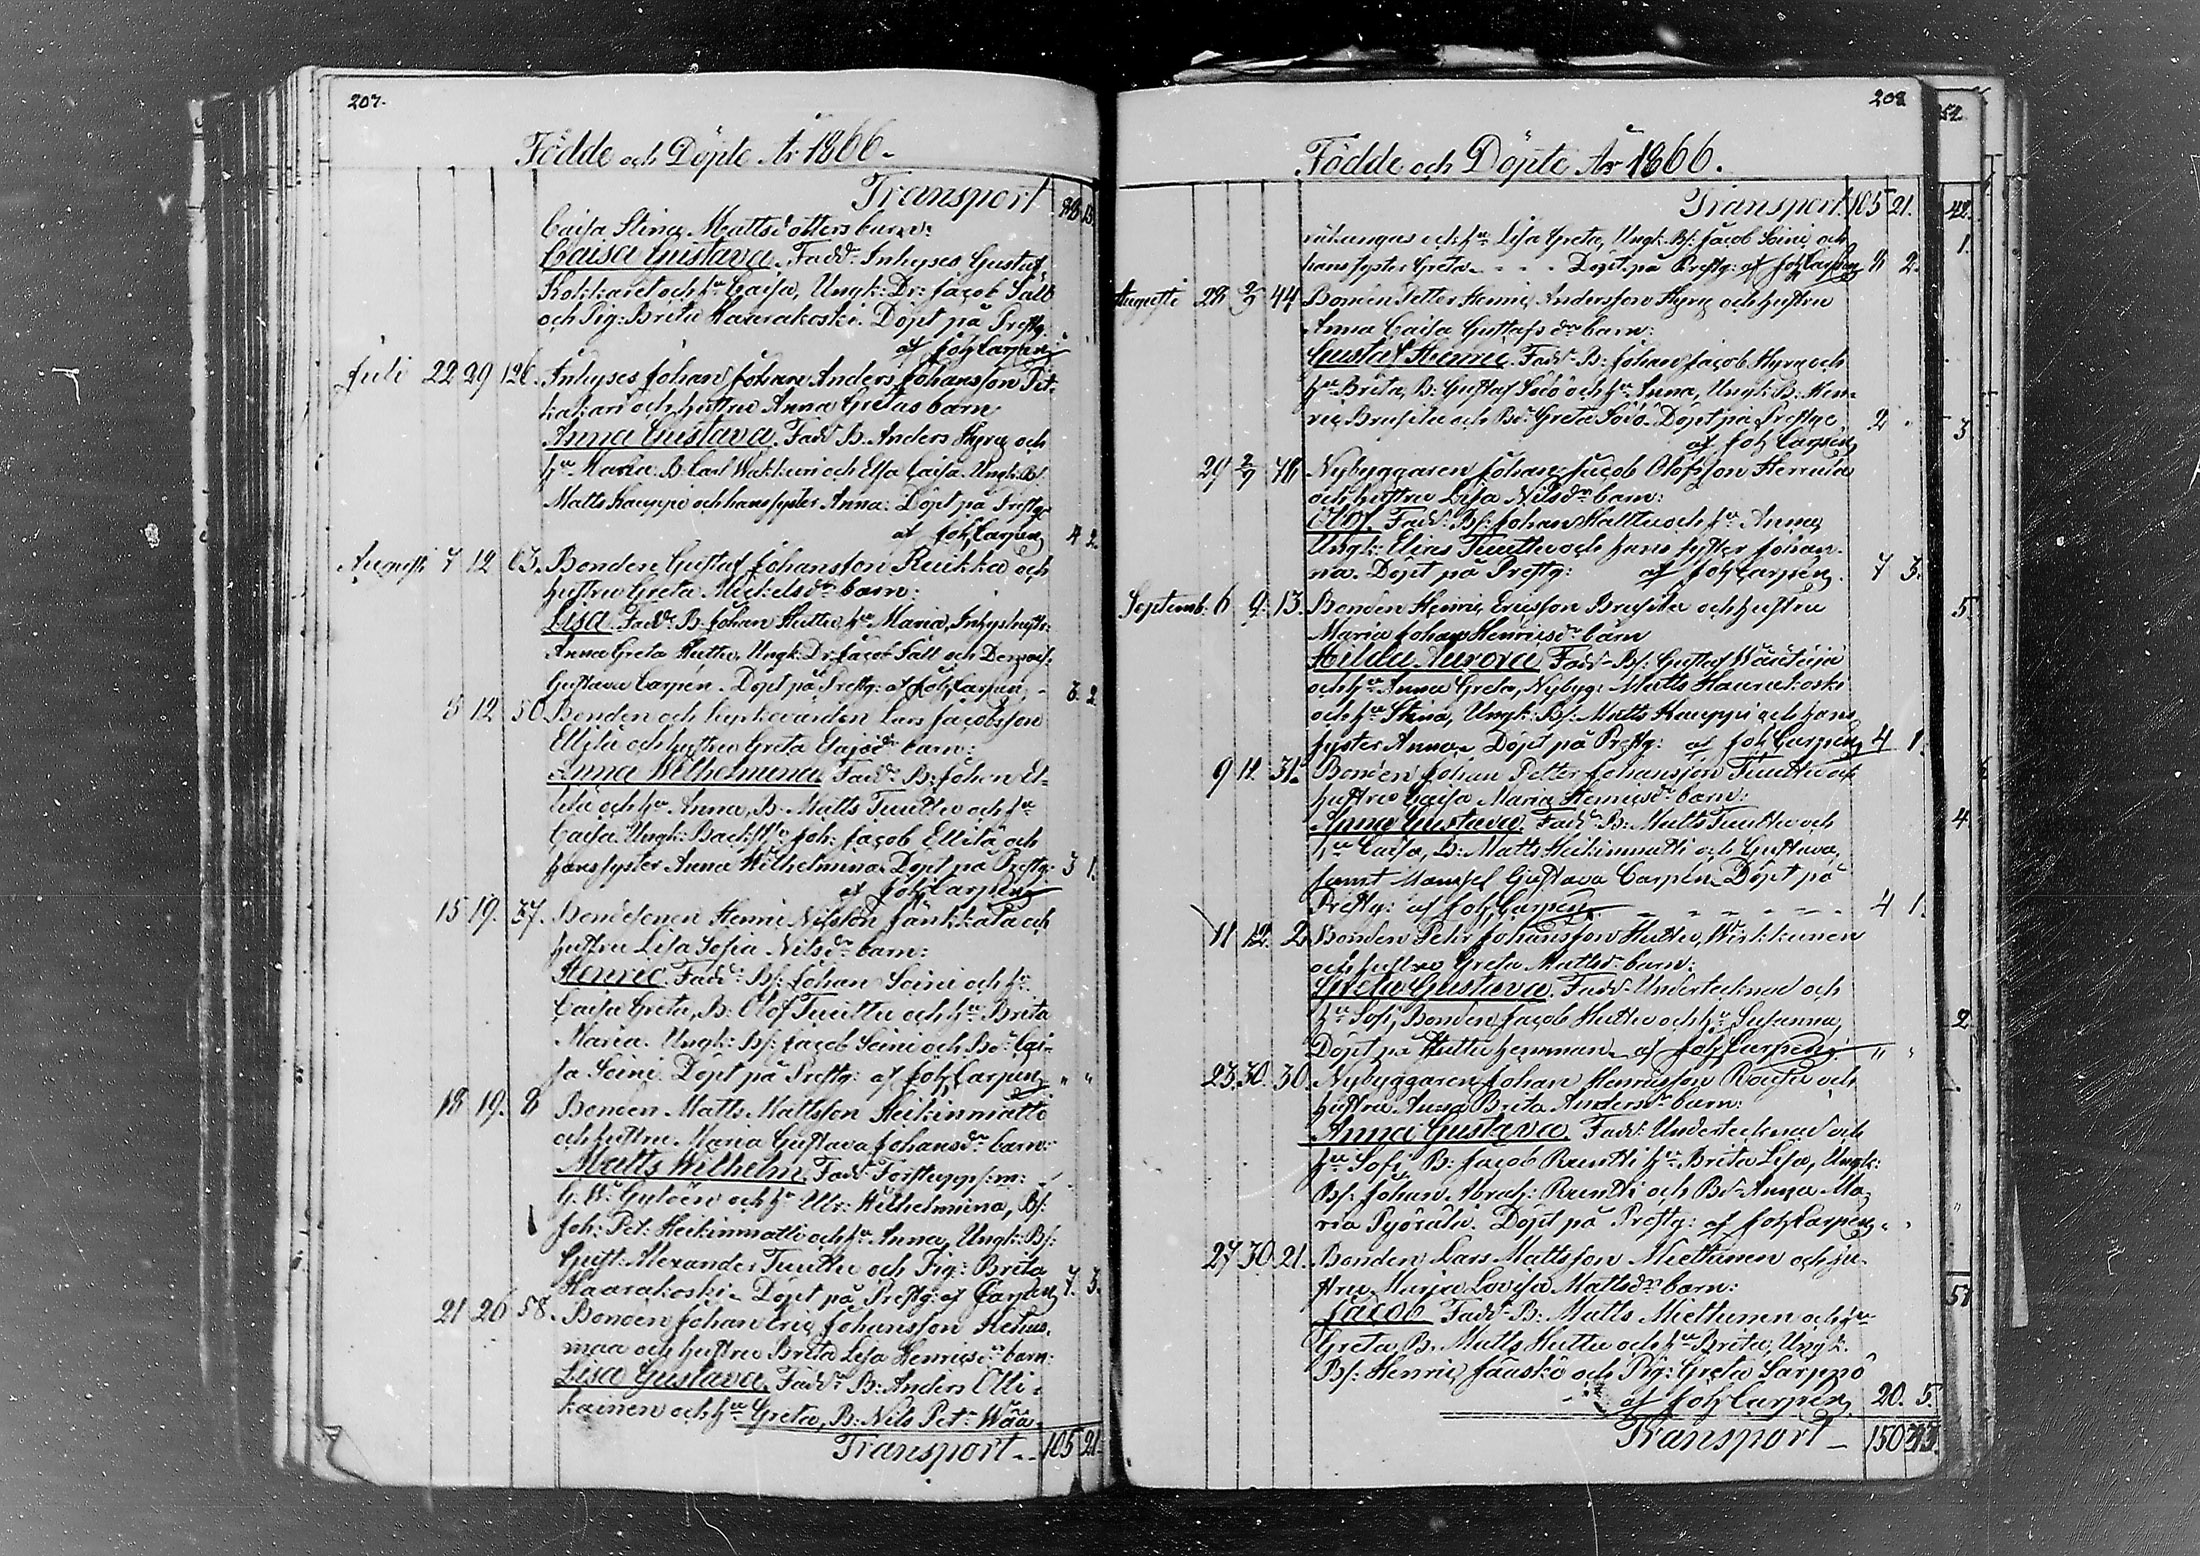 207.
Födde och Döpte År 1866.
Transport
Caisa Stina Mattsdotters barn:
Caisa Gustava. Fadd: Inhyses Gustaf
och hu Caisa, Ungk: Dr: Jacob Sält
och Pig: Brita Haarakoski. Döpt på Prestg:
af Joh Carpén
Juli 22 29 126. Inhyses Johan Anders Johansson Pit-
kakari och hustru Anna Gretas barn
Anna Gustava. Fadd: B. Anders Hyrq och
hu Maria. B. Carl Wakkuri och Elsa Caisa. Ungk: Bs:
Matts Kauppi och hans syster Anna: Döpt på Prestg:
af Joh Carpén 4 2
Augusti 7 12 63. Bonden Gustaf Johansson Ruikka och
hustru Greta Mickelsdr barn:
Lisa. Fadd: B. Johan Huttu, hu Maria, Inhyses
Anna Greta Huttu, Ungk: Dr. Jacob Sält och
Gustava Carpén. Döpt på Prestg: af Joh Carpén 3. 2
8 12 50 Bonden och kyrkovärden Lars Jacobsson
Ellilä och hustru Greta barn:
Anna Wilhelmina. Fadd: B: Johan El-
lilä och hu Anna, B. Matts Tuuttu och hu
Caisa. Ungk: Joh: Jacob Ellilä och
hans syster Anna Wilhelmina. Döpt på Prestg: 3 1.
af Joh Carpén
15 19. 37. Bondesonen Henric Nilsson Jänkkälä och
hustru Lisa Sofia Nilsdr barn:
Henric. Fadd: Bs: Johan Soini och hu
Caisa Greta, B: Olof Tuuttu och hu Brita
Maria. Ungk: Bs: Jacob Soini och Bdr Cai-
sa Soini. Döpt på Prestg: af Joh Carpén " "
18 19. 8 Bonden Matts Mattsson Heikinmatti
och hustru Maria Gustava Johansdr barn:
Matts Wilhelm. Fadd:
G. W: och hu Ulr: Wilhelmina, Bs:
Joh: Pet: Heikinmatti och hu Anna, Ungk: Bs:
Gust: Alexander Tuuttu och Pig: Brita
Haarakoski. Döpt på Prestg: af Carpén 7. 3.
21 26 58. Bonden Johan Eric Johansson Hehus-
maa och hustru Brita Lisa Henricsdr barn:
Lisa Gustava. Fadd: B: Anders Olli-
kainen och hu Greta, B: Nils Petr Wää-
Transport 105 21.
208
Födde och Döpte År 1866.
Transport 105 21.
och hu Lisa Greta, Ungk. Bs: Jacob Soini och
hans syster Greta Döpt på Prestg: af Joh Carpén 8 2.
Augusti 28 2/9 44 Bonden Petter Henric Andersson Hyrq och hustru
Anna Caisa Gustafsdr barn:
Gustaf Henric. Fadd: B: Johan Jacob Hyrq och
hu Brita, B. Gustaf Soiö och hu Anna, Ungk: B: Hen-
ric Brusila och Bdr Greta Soiö. Döpt på Prestg: 2
af Joh Carpén
29 2/9 78 Nybyggaren Johan Jacob Olofsson Herrala
och hustru Lisa Nilsdr barn:
Olof. Fadd: Bs: Johan Kalttu och hu Anna,
Ungk: Elias Tuuttu och hans syster Johan-
na. Döpt på Prestg: af Joh Carpén. 7 3.
Septemb: 6 9. 13. Bonden Henric Ericsson Brusila och hustru
Maria Johan Henricsdr barn
Hilda Aurora. Fadd: Bs: Gustaf Wäätäjä
och hu Anna Greta, Nybyg: Matts Haarakoski
och hu Stina, Ungk: Bs: Matts Kauppi och hans
syster Anna. Döpt på Prestg: af Joh Carpén 4 1.
9 12 31. Bonden Johan Petter Johansson Tuuttu och
hustru Caisa Maria Henricsdr barn:
Anna Gustava. Fadd: B: Matts Tuuttu och
hu Caisa, B: Matts Heikinmatti och Gustava,
samt Mamsel Gustava Carpén. Döpt på
Prestg: af Joh Carpén 4 1.
11 12. 2. Bonden Pehr Johansson Huttu, Wirkkunen
och hustru Greta Mattsdr barn:
Greta Gustava. Fadd: Undertecknad och
hu Sofi, Bonden Jacob Huttu och hu Susanna,
Döpt på Huttu hemman. af Joh Carpén " "
23. 30. 30. Nybyggaren Johan Henricsson Rautu och
hustru Anna Brita Andersdr barn:
Anna Gustava. Fadd: Undertecknad och
hu Sofi, B: Jacob Runtti hu Brita Lisa, Ungk:
Bs: Johan Abrah: Runtti och Bdr Anna Ma-
ria Pyörälä. Döpt på Prestg: af Joh Carpén
27. 30. 21. Bonden Lars Mattsson Miettunen och hu-
stru Maria Lovisa Mattsdr barn:
Jacob. Fadd: B: Matts Miettunen och hu
Greta, B. Matts Huttu och hu Brita, Ungk.
Bs: Henric Jääskö och Pig: Greta Särppö
af Joh Carpén 20. 5.
Transport 150